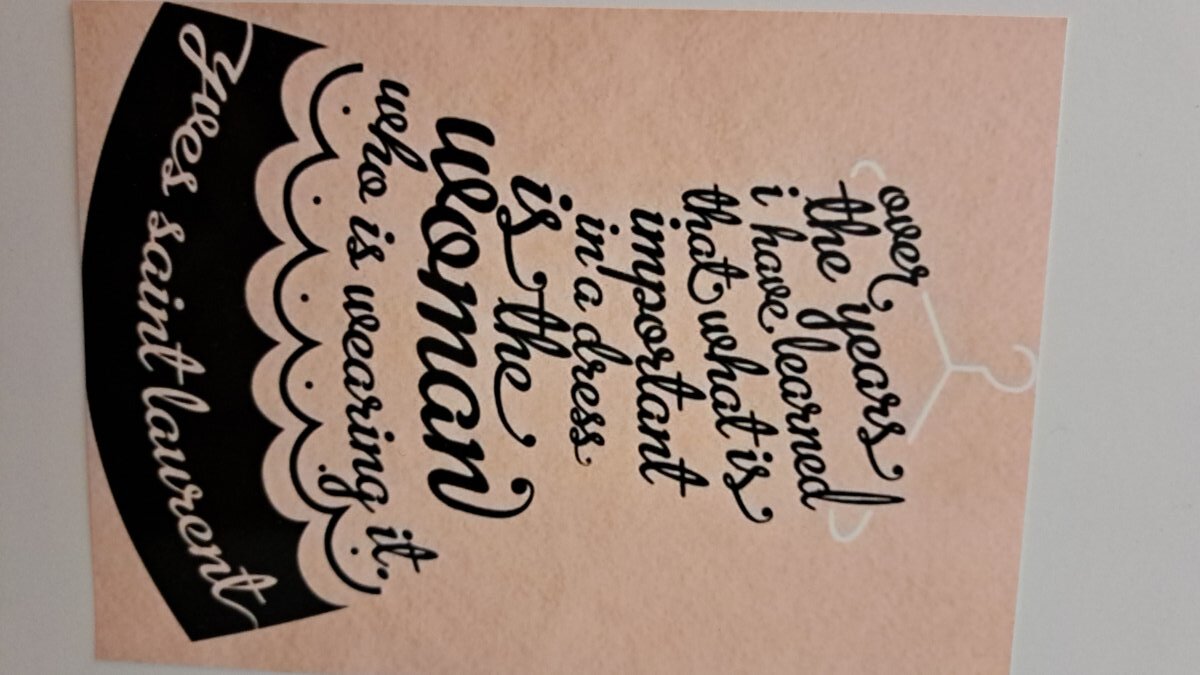 over
the years
i have learned
that what is
important
in a dress
is the
woman
who is wearing it.
yves saint laurent